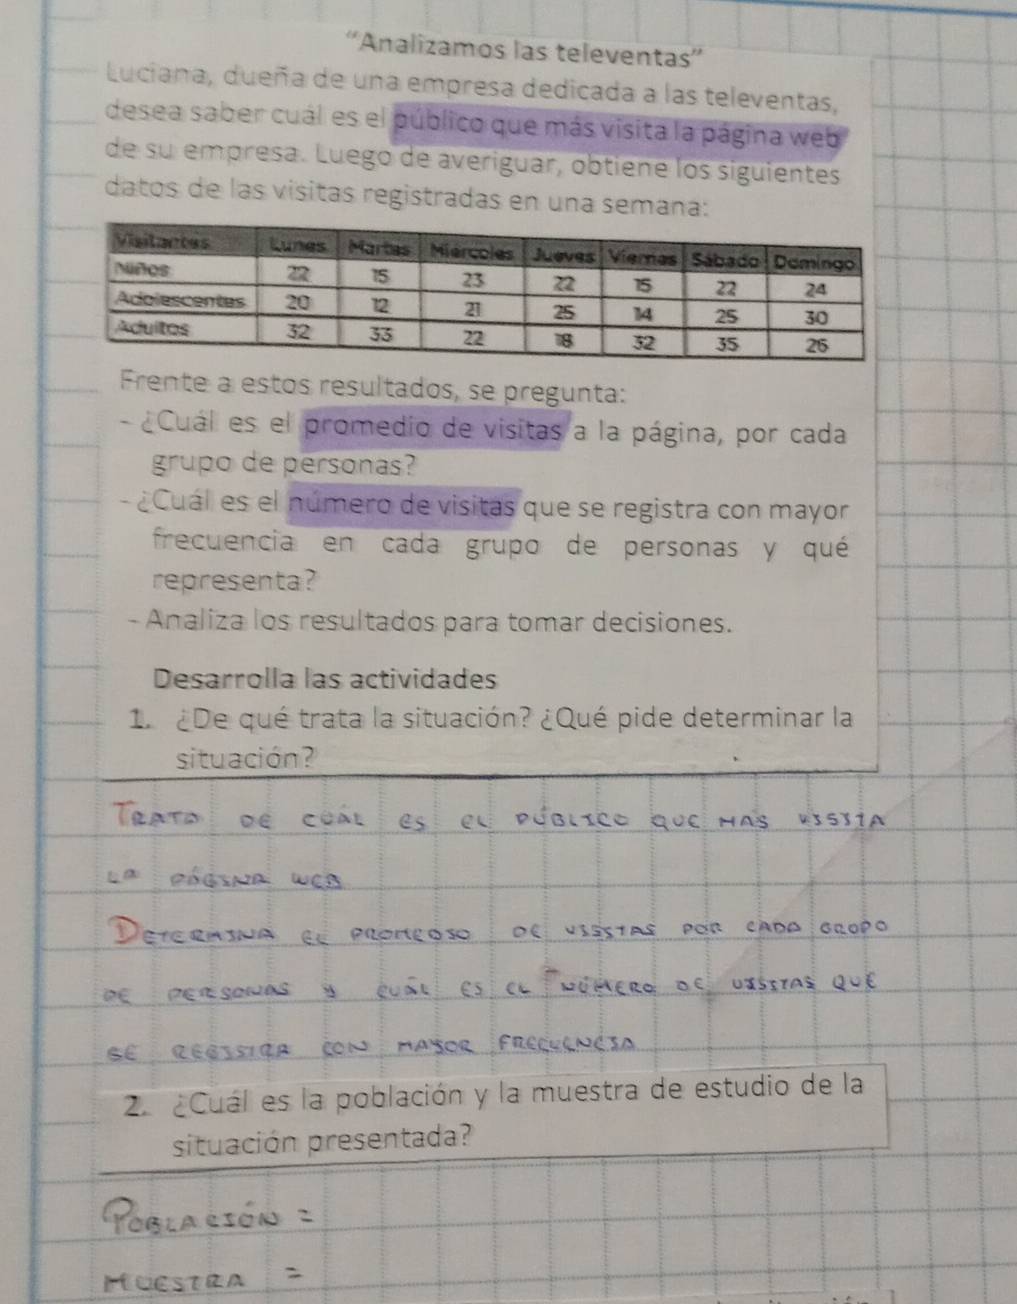 "Analizamos las televentas"
Luciana, dueña de una empresa dedicada a las televentas,
desea saber cuál es el público que más visita la página web
de su empresa. Luego de averiguar, obtiene los siguientes
datos de las visitas registradas en una semana:
Visitantes Lunes Martes Miércoles Jueves Viernes Sábado Domingo
Niños 22 15 23 22 15 22 24
Adolescentes 20 12 21 25 14 25 30
Adultos 32 33 22 18 32 35 26
Frente a estos resultados, se pregunta:
- ¿Cuál es el promedio de visitas a la página, por cada
grupo de personas?
- ¿Cuál es el número de visitas que se registra con mayor
frecuencia en cada grupo de personas y qué
representa?
- Analiza los resultados para tomar decisiones.
Desarrolla las actividades
1. ¿De qué trata la situación? ¿Qué pide determinar la
situación?
TRATA DE CUÁL ES EL PÚBLICO QUE MÁS VISITA
LA PÁGINA WEB
DETERMINA EL PROMEDIO DE VISITAS POR CADA GRUPO
DE PERSONAS Y CUÁL ES EL NÚMERO DE VISITAS QUE
SE REGISTRA CON MAYOR FRECUENCIA
2. ¿Cuál es la población y la muestra de estudio de la
situación presentada?
POBLACIÓN =
MUESTRA =